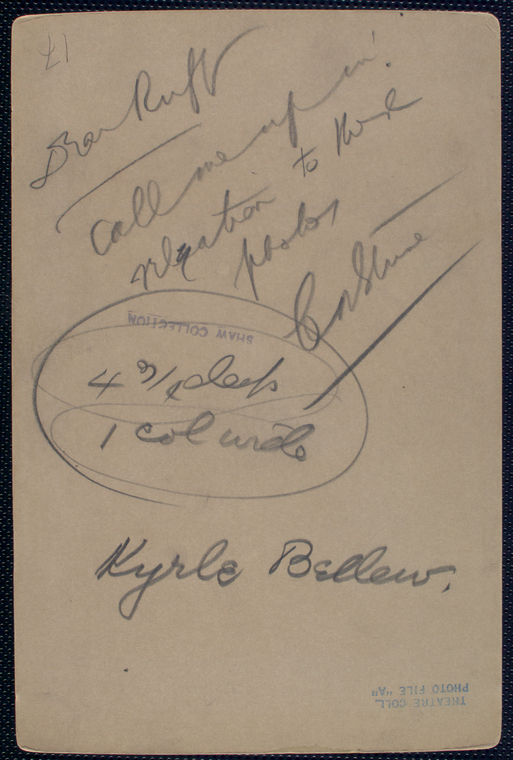 £1
Dear Ruff
call me up in
relation to these
photos
SHAW COLLECTION
4 3/4 deep
1 col wide
Kyrle Bellew.
THEATRE COLL.
PHOTO FILE "A"